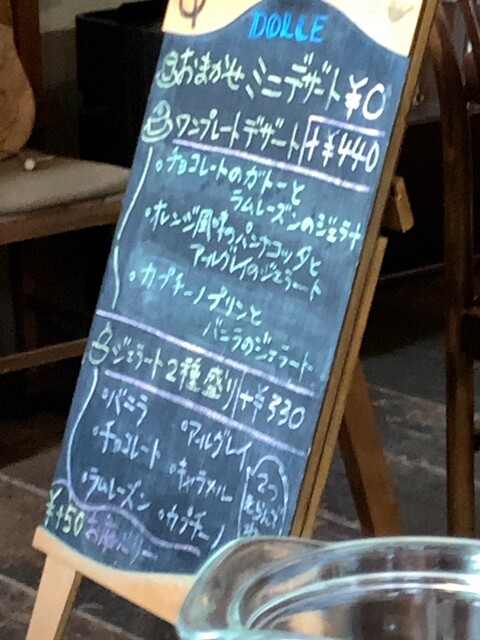 DOLCE
おまかせミニデザート ¥0
ワンプレートデザート +¥440
・チョコレートのガトーと
ラムレーズンのジェラート
・オレンジ風味のパンナコッタと
アールグレイのジェラート
・カプチーノプリンと
バニラのジェラート
ジェラート2種盛り +¥330
・バニラ ・アールグレイ
・チョコレート ・キャラメル
・ラムレーズン ・カプチーノ
2つ
¥+50